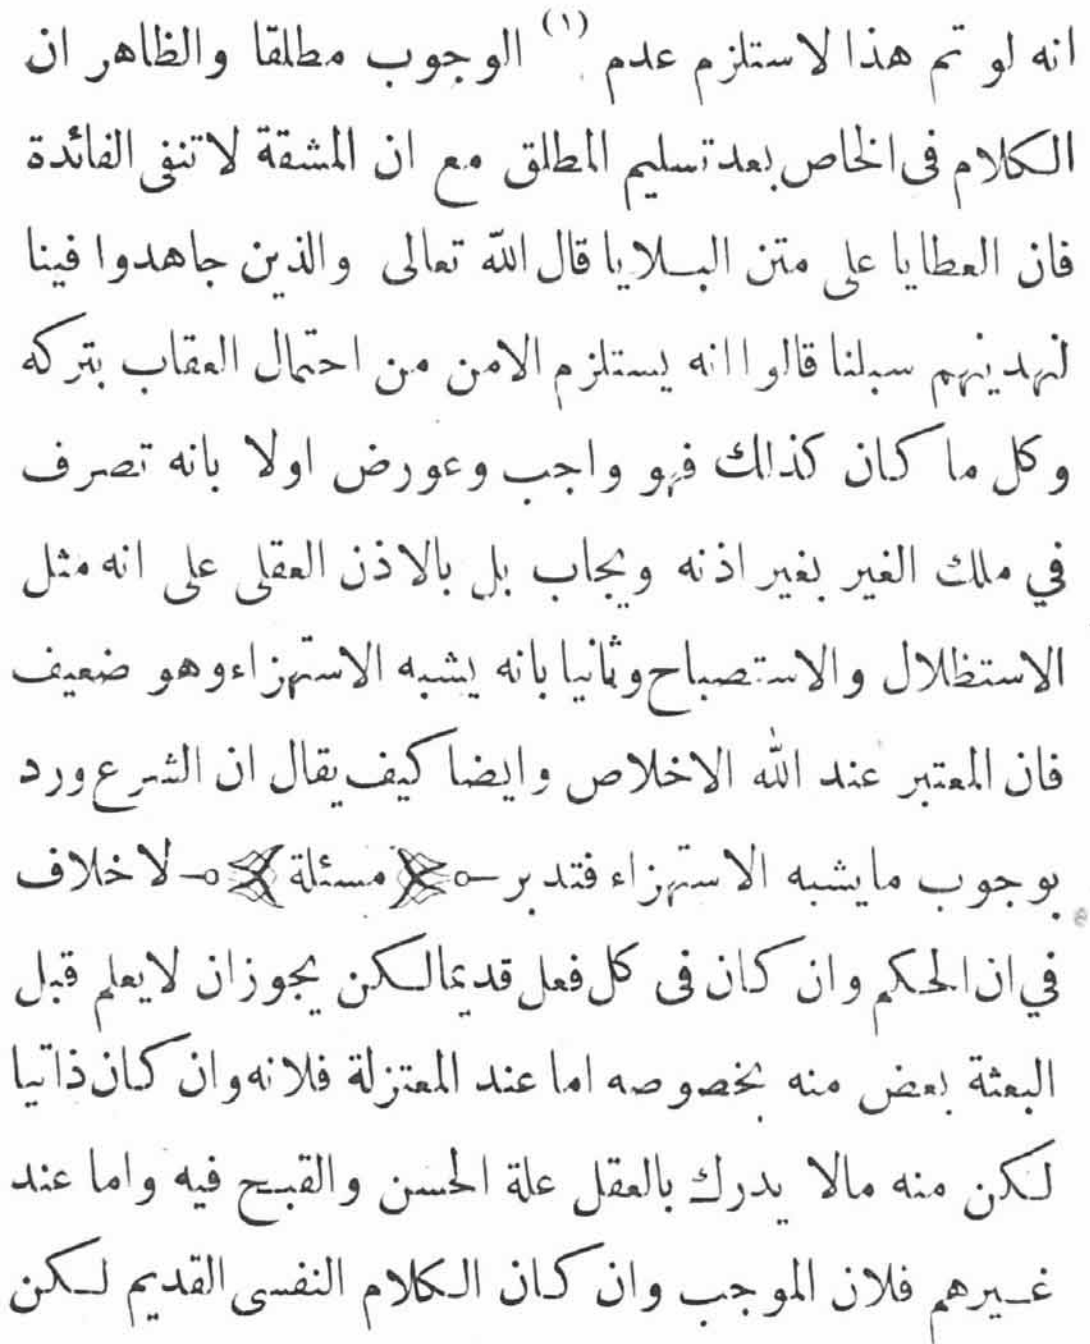 انه لو تم هذا لاستلزم عدم (١) الوجوب مطلقا والظاهر ان
الكلام فى الخاص بعد تسليم المطلق مع ان المشقة لا تنفى الفائدة
فان العطايا على متن البلايا قال الله تعالى والذين جاهدوا فينا
لنهدينهم سبلنا قالوا انه يستلزم الامن من احتمال العقاب بتركه
وكل ما كان كذلك فهو واجب وعورض اولا بانه تصرف
في ملك الغير بغير اذنه ويجاب بل بالاذن العقلى على انه مثل
الاستظلال والاستصباح وثانيا بانه يشبه الاستهزاء وهو ضعيف
فان المعتبر عند الله الاخلاص وايضا كيف يقال ان الشرع ورد
بوجوب ما يشبه الاستهزاء فتدبر مسئلة لا خلاف
في ان الحكم وان كان فى كل فعل قديما لكن يجوز ان لا يعلم قبل
البعثة بعض منه بخصوصه اما عند المعتزلة فلانه وان كان ذاتيا
لكن منه مالا يدرك بالعقل علة الحسن والقبح فيه واما عند
غيرهم فلان الموجب وان كان الكلام النفسى القديم لكن